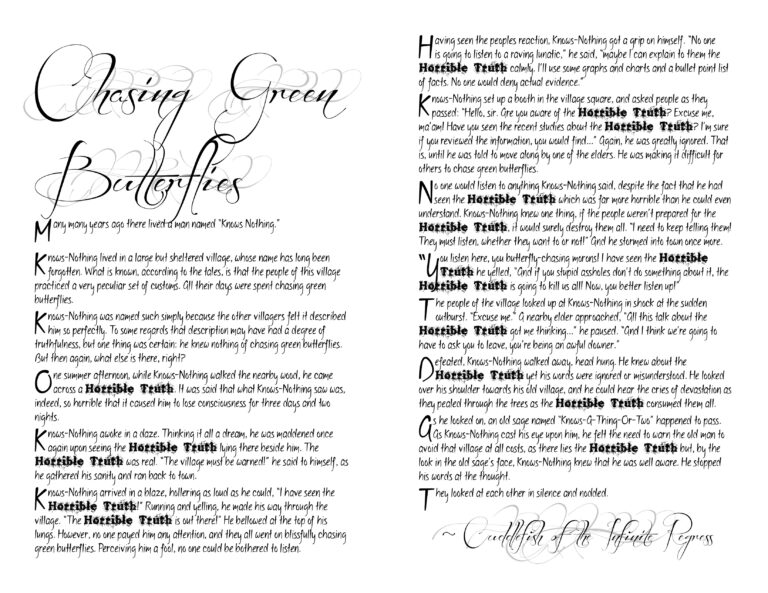 Chasing Green
Butterflies
Many many years ago there lived a man named "Knows Nothing."
Knows-Nothing lived in a large but sheltered village, whose name has long been
forgotten. What is known, according to the tales, is that the people of this village
practiced a very peculiar set of customs. All their days were spent chasing green
butterflies.
Knows-Nothing was named such simply because the other villagers felt it described
him so perfectly. To some regards that description may have had a degree of
truthfulness, but one thing was certain: he knew nothing of chasing green butterflies.
But then again, what else is there, right?
One summer afternoon, while Knows-Nothing walked the nearby wood, he came
across a Horrible Truth. It was said that what Knows-Nothing saw was,
indeed, so horrible that it caused him to lose consciousness for three days and two
nights.
Knows-Nothing awoke in a daze. Thinking it all a dream, he was maddened once
again upon seeing the Horrible Truth lying there beside him. The
Horrible Truth was real. "The village must be warned!" he said to himself, as
he gathered his sanity and ran back to town.
Knows-Nothing arrived in a blaze, hollering as loud as he could, "I have seen the
Horrible Truth!" Running and yelling, he made his way through the
village. "The Horrible Truth is out there!" He bellowed at the top of his
lungs. However, no one payed him any attention, and they all went on blissfully chasing
green butterflies. Perceiving him a fool, no one could be bothered to listen.
Having seen the peoples reaction, Knows-Nothing got a grip on himself. "No one
is going to listen to a raving lunatic," he said, "maybe I can explain to them the
Horrible Truth calmly, I'll use some graphs and charts and a bullet point list
of facts. No one would deny actual evidence."
Knows-Nothing set up a booth in the village square, and asked people as they
passed: "Hello, sir. Are you aware of the Horrible Truth? Excuse me,
ma'am! Have you seen the recent studies about the Horrible Truth? I'm sure
if you reviewed the information, you would find..." Again, he was greatly ignored. That
is, until he was told to move along by one of the elders. He was making it difficult for
others to chase green butterflies.
No one would listen to anything Knows-Nothing said, despite the fact that he had
seen the Horrible Truth which was far more horrible than he could even
understand. Knows-Nothing knew one thing, if the people weren't prepared for the
Horrible Truth, it would surely destroy them all. "I need to keep telling them!
They must listen, whether they want to or not!" And he stormed into town once more.
"You listen here, you butterfly-chasing morons! I have seen the Horrible
Truth he yelled, "And if you stupid assholes don't do something about it, the
Horrible Truth is going to kill us all! Now, you better listen up!"
The people of the village looked up at Knows-Nothing in shock at the sudden
outburst. "Excuse me." A nearby elder approached, "All this talk about the
Horrible Truth got me thinking..." he paused. "And I think we're going to
have to ask you to leave, you're being an awful downer."
Defeated, Knows-Nothing walked away, head hung. He knew about the
Horrible Truth yet his words were ignored or misunderstood. He looked
over his shoulder towards his old village, and he could hear the cries of devastation as
they pealed through the trees as the Horrible Truth consumed them all.
As he looked on, an old sage named "Knows-A-Thing-Or-Two" happened to pass.
As Knows-Nothing cast his eye upon him, he felt the need to warn the old man to
avoid that village at all costs, as there lies the Horrible Truth but, by the
look in the old sage's face, Knows-Nothing knew that he was well aware. He stopped
his words at the thought.
They looked at each other in silence and nodded.
~ Cuddlefish of the Infinite Regress